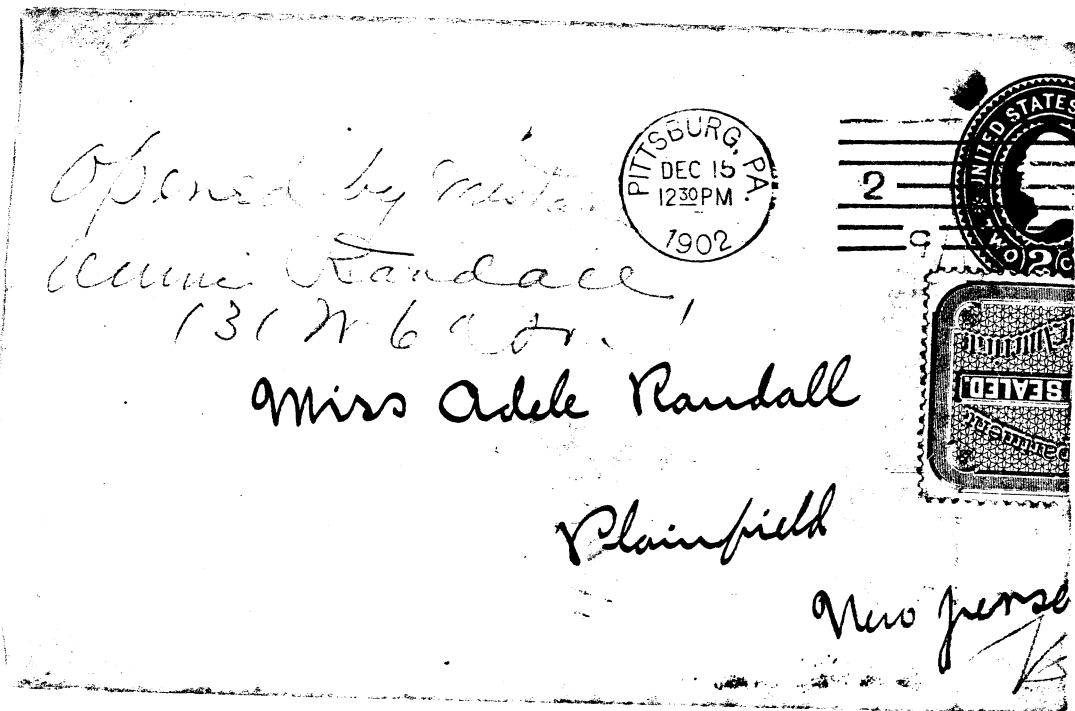 Opened by mista
Annie Randall,
131 W 6
PITTSBURG, PA.
DEC 15
12 30 PM
1902
2
9
UNITED STATES
TWO 2 C
SEALED.
Miss Adele Randall
Plainfield
New Jerse